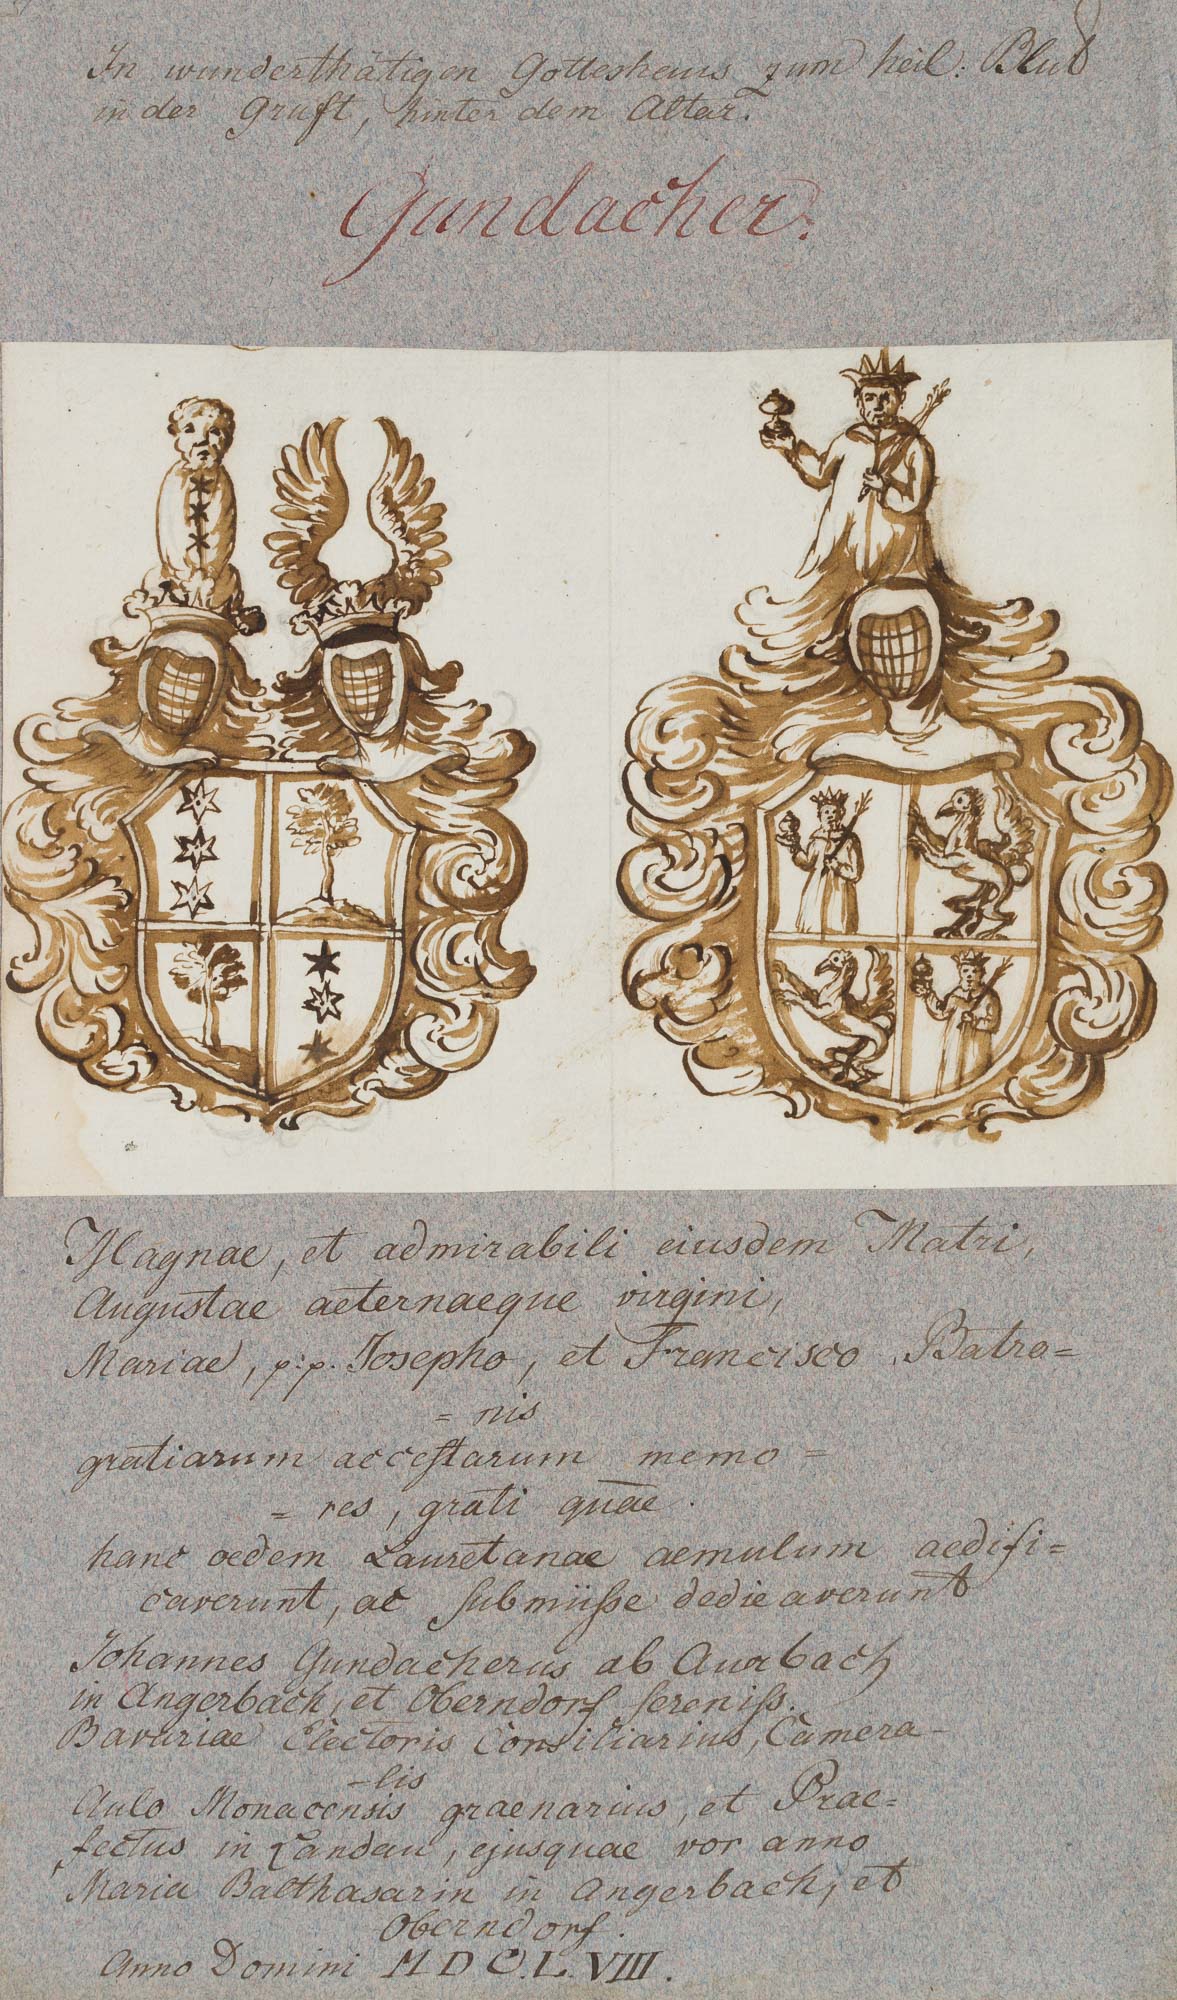 In wunderthätigen Gotteshaus zum heil: Blut
in der Gruft, hinter dem Altar.
Gundacher.
Magnae, et admirabili eiusdem Matri,
Augustae aeternaeque virgini,
Mariae, p:p. Josepho, et Francisco Patro=
= nis
gratiarum acceptarum memo =
= res, grati quae.
hanc aedem Lauretanae aemulum aedifi=
caverunt, ac submiisse dedicaverunt
Johannes Gundacherus ab Aurbach
in Angerbach, et Oberndorf sereniss.
Bavariae Electoris Consiliarius, Camera-
-lis
Aulo Monacensis graenarius, et Prae=
fectus in Landau, ejusquae vor anno
Maria Balthasarin in Angerbach, et
Oberndorf.
Anno Domini MDC.L.VIII.